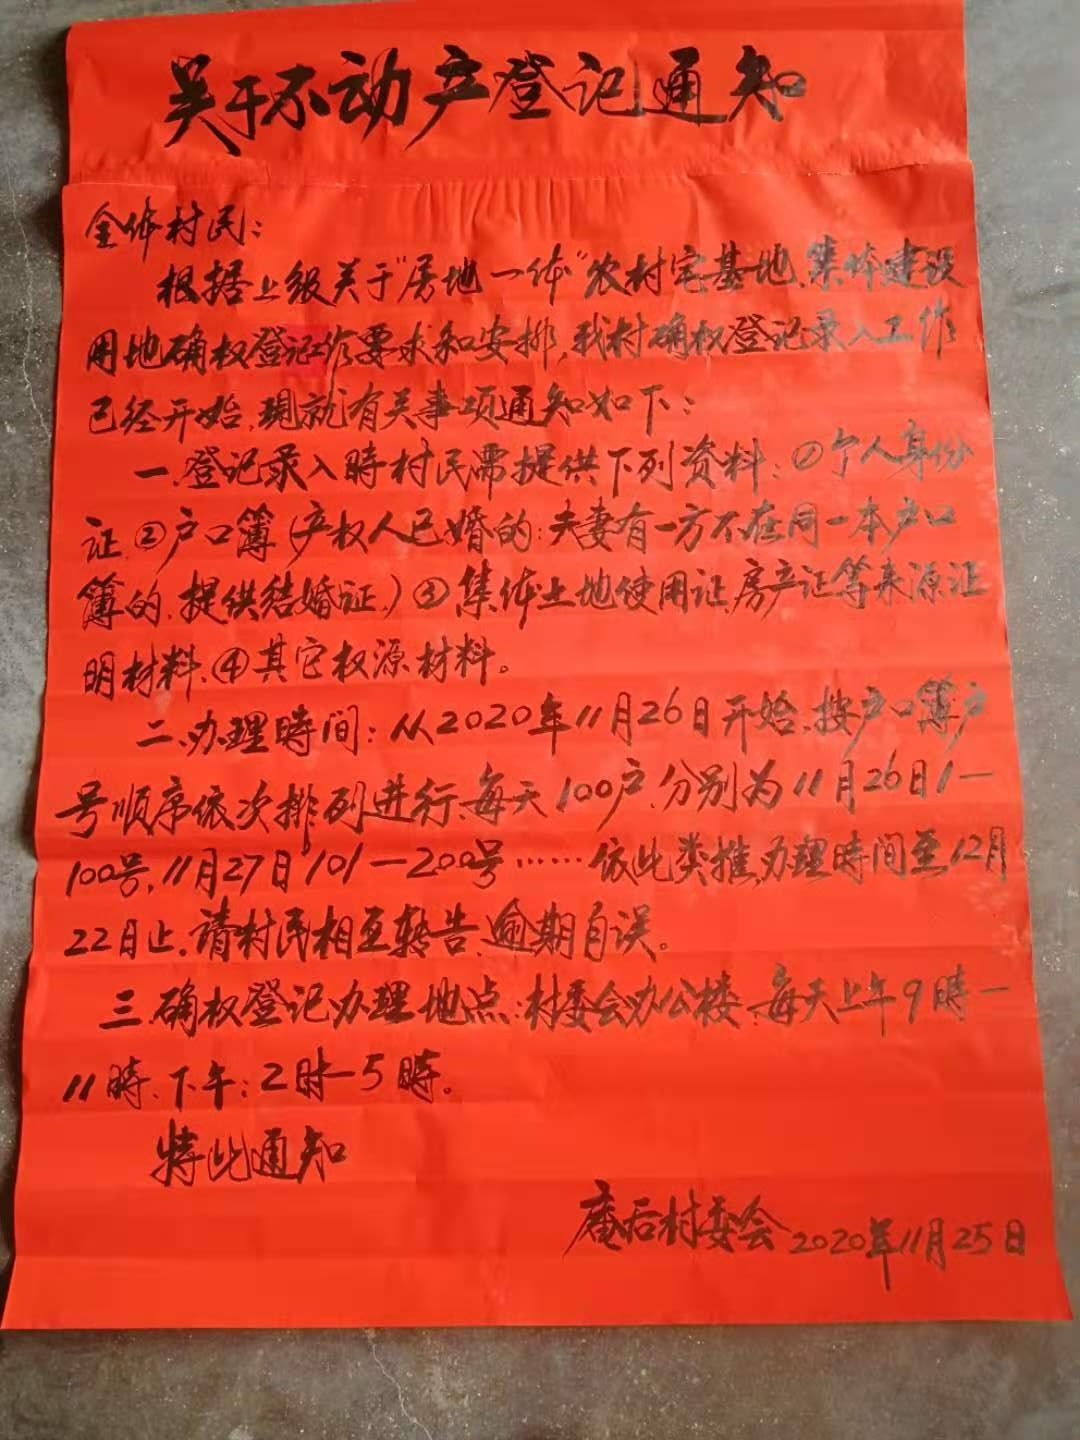 关于不动产登记通知
全体村民:
根据上级关于"房地一体"农村宅基地、集体建设
用地确权登记工作要求和安排,我村确权登记录入工作
已经开始,现就有关事项通知如下:
一、登记录入時村民需提供下列资料:①个人身份
证、②户口簿(产权人已婚的:夫妻有一方不在同一本户口
簿的、提供结婚证、)③集体土地使用证、房产证等来源证
明材料、④其它权源材料。
二、办理時间:从2020年11月26日开始、按户口簿户
号顺序依次排列进行、每天100户、分别为11月26日1—
100号,11月27日101—200号……依此类推、办理時间至12月
22日止、请村民相互转告、逾期自误。
三、确权登记办理地点:村委会办公楼、每天上午9時—
11時、下午:2时—5時。
特此通知
庵后村委会2020年11月25日